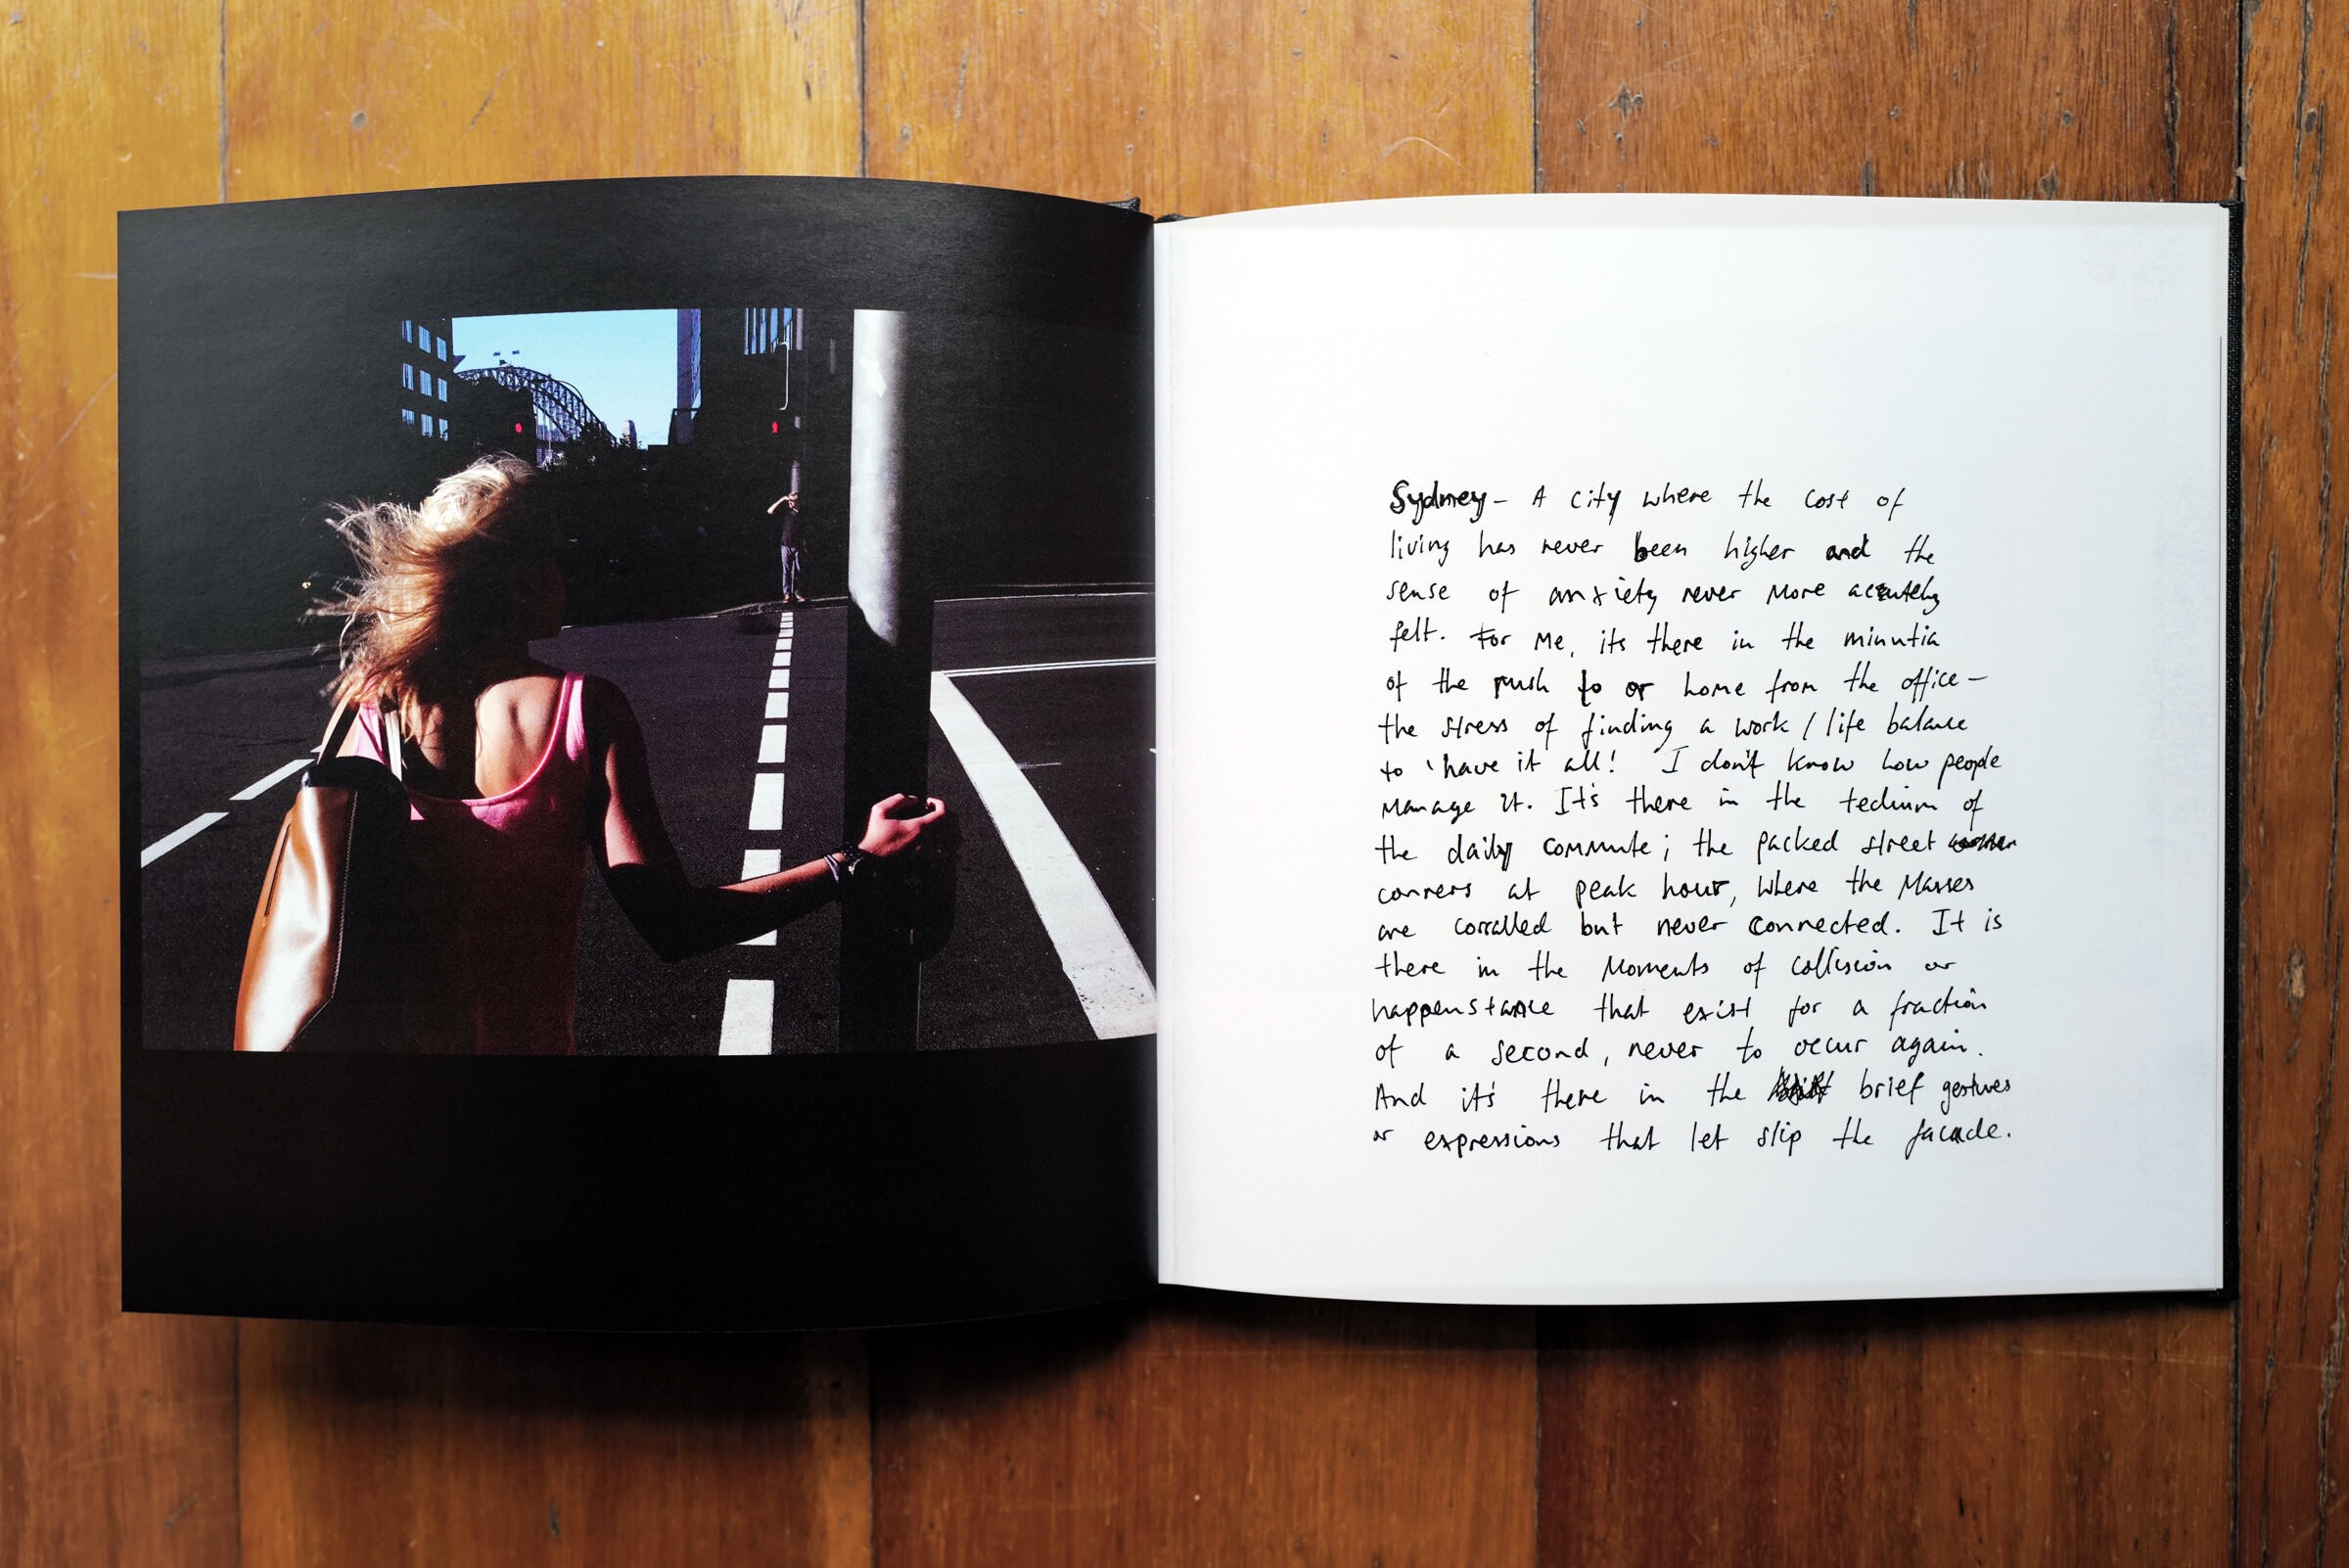 Sydney - A city where the cost of
living has never been higher and the
sense of anxiety never more accutely
felt. For me, its there in the minutia
of the push to or home from the office -
the stress of finding a work / life balance
to 'have it all! I don't know how people
manage it. It's there in the tedium of
the daily commute; the packed street
corners at peak hour, where the masses
are corralled but never connected. It is
there in the moments of collision or
happenstance that exist for a fraction
of a second, never to occur again.
And it's there in the brief gestures
or expressions that let slip the facade.